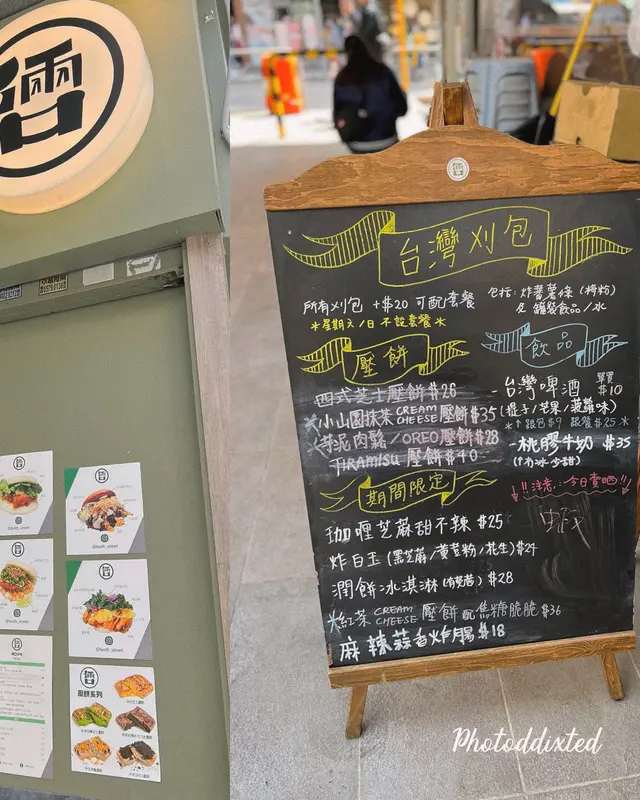 台灣刈包
所有刈包 +$20 可配套餐
*星期六/日 不設套餐*
包括: 炸蕃薯條 (梅粉)
及 罐裝飲品/水
壓餅
四式芝士壓餅 $26
*小山園抹茶 CREAM CHEESE 壓餅 $35
芋泥肉鬆/OREO壓餅 $28
TIRAMISU 壓餅 $40
飲品
-台灣啤酒 單買 $10
(提子/芒果/菠蘿味)
*↑跟包$9 跟餐$25*
-桃膠牛奶 $35
(冇冰少甜)
!!注意:今日賣晒!!
蝦
期間限定
咖喱芝麻甜不辣 $25
炸白玉 (黑芝麻/黃荳粉/花生) $24
潤餅冰淇淋 $28
*紅茶 CREAM CHEESE 壓餅 配焦糖脆脆 $36
麻辣蒜香炸腸 $18
壓餅系列
Photoddixted